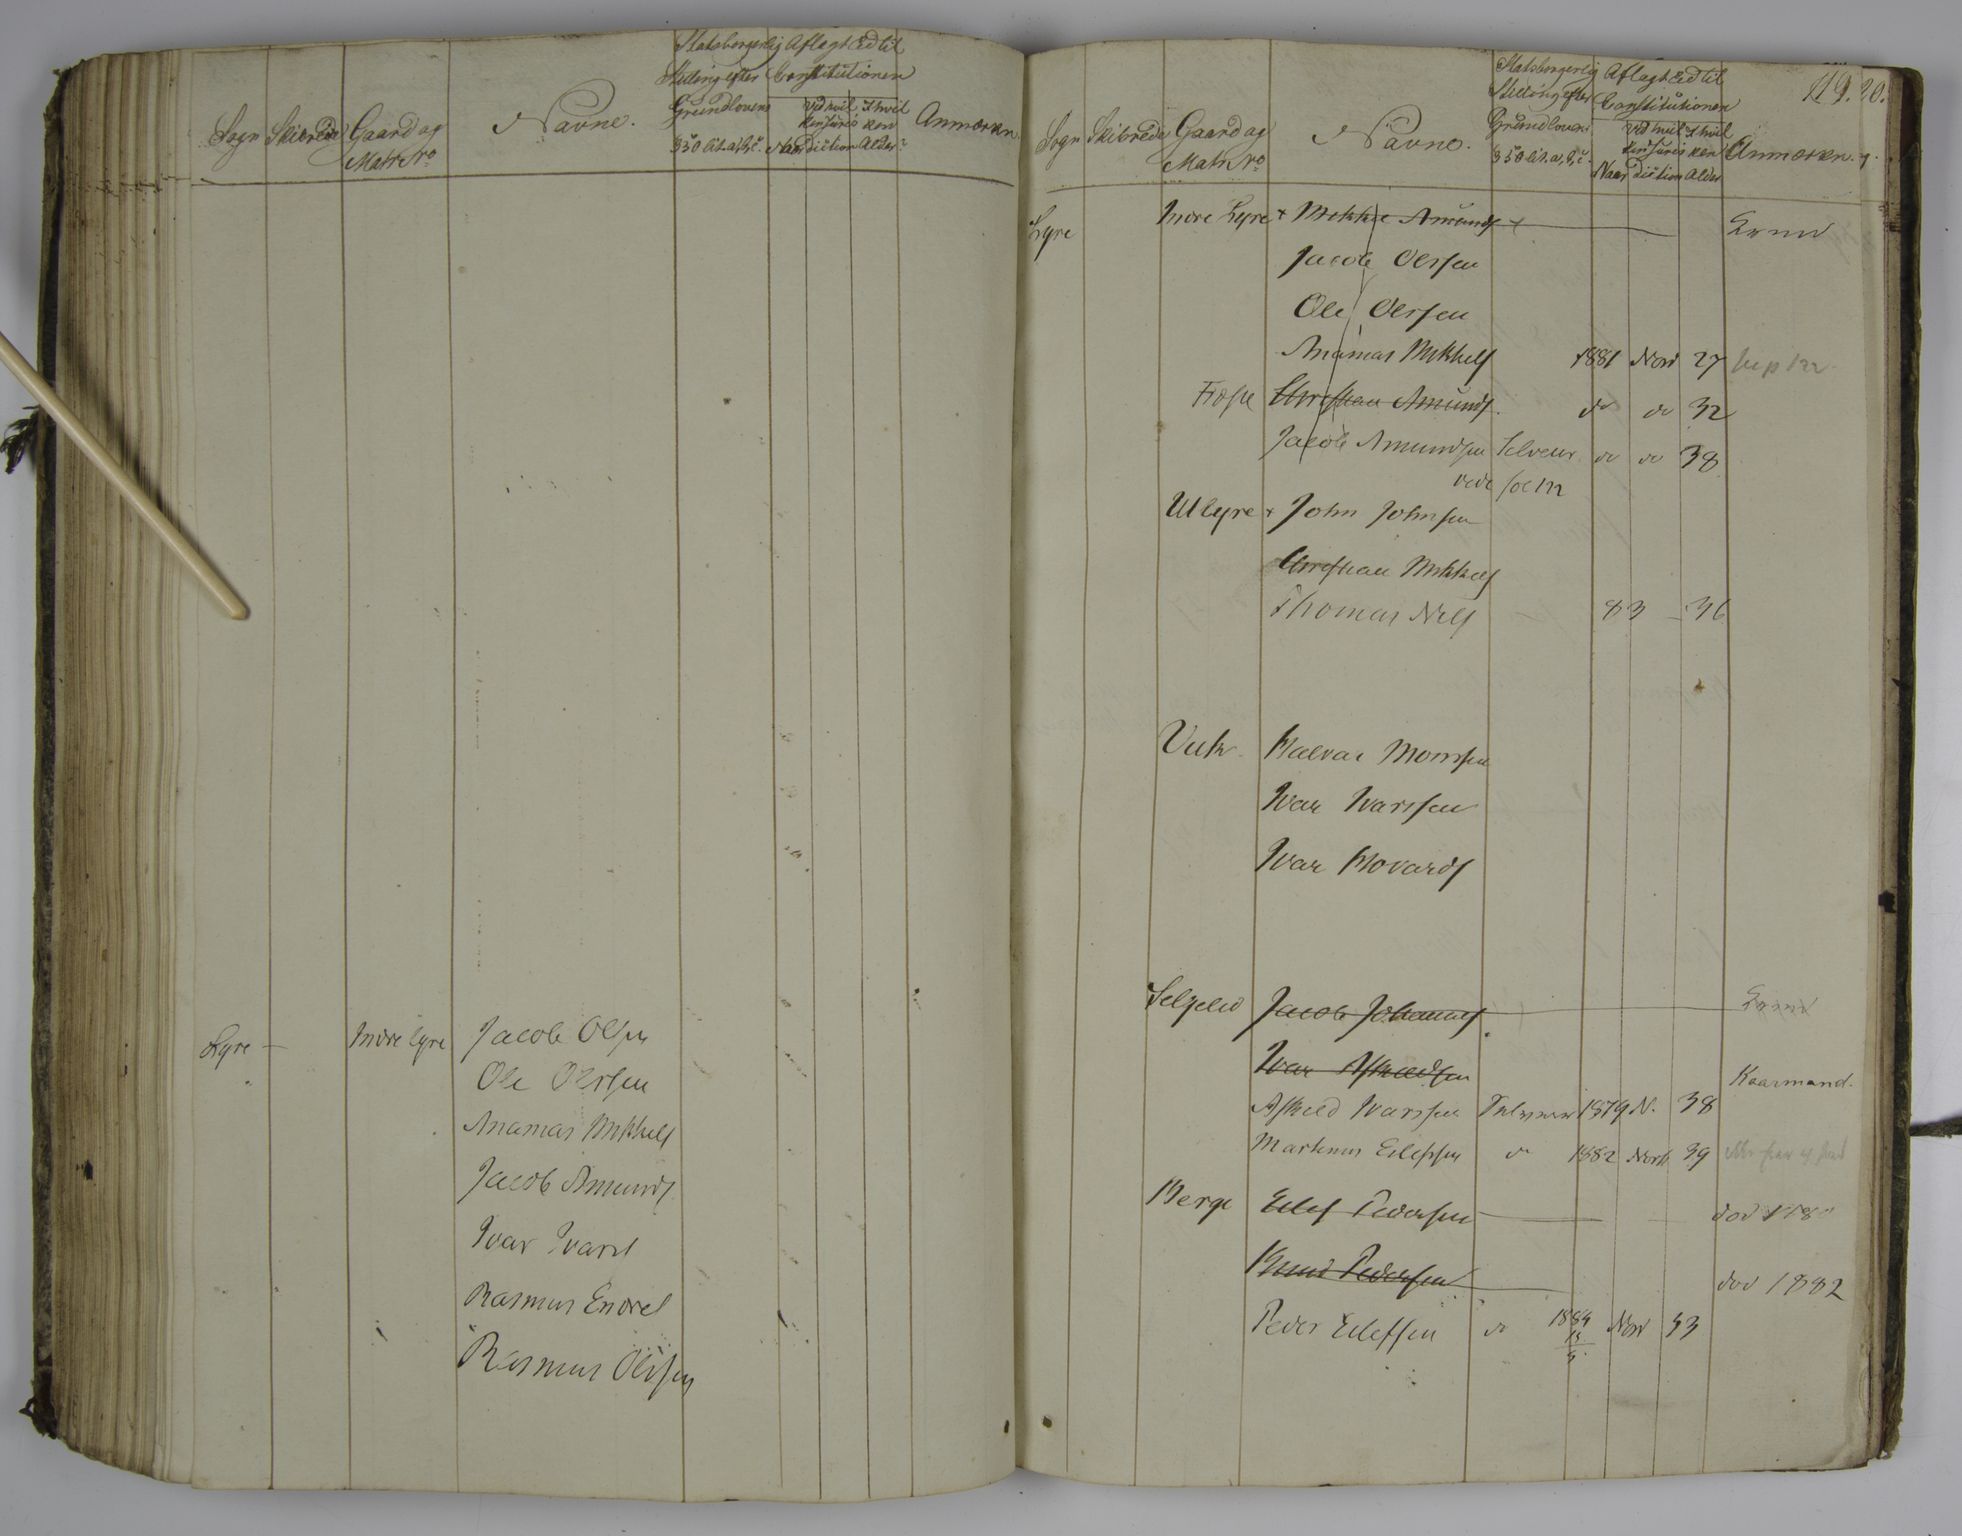 Sogn Skibrede Gaard og Matr No Navne. Statsborgerlig Stilling efter Grundlovens § 50 lit. a, b, c. Aflagt Ed til Constitutionen Naar Ved hvilken Jurisdiction I hvilken Alder? Anmærkn.
Lyre — Indre Lyre Jacob Olsen
Ole Olsen
Anamas Mikkels
Jacob Amunds
Ivar Ivars
Rasmus Endres
Rasmus Olsen
119. 20.
Sogn Skibrede Gaard og Matr No Navne. Statsborgerlig Stilling efter Grundlovens § 50 lit. a, b, c. Aflagt Ed til Constitutionen Naar Ved hvilken Jurisdiction I hvilken Alder Anmærkn.
Lyre Indre Lyre + Mikkel Amunds
Jacob Olsen
Ole Olsen
Anamas Mikkels 1881 Nov 27
Christian Amunds. do do 32
Jacob Amundsen Selveier do do 38
vide fol 122
Utlyre + John Johnsen
Christian Mikkels
Thomas Nils — 83 — 36
Vik Halvar Monsen
Ivar Ivarsen
Ivar Hovards
Selgelid Jacob Johannes
Ivar Askildsen Kaarmand.
Askild Ivarsen 1879 N. 38
Markus Eilefsen do 1882 39
Berge Eilef Pedersen dod 1880
Knud Pedersen dod 1882
Peder Eilefsen do 1884 Nov 33